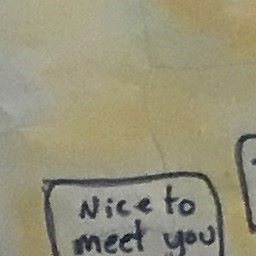 Nice to
meet you